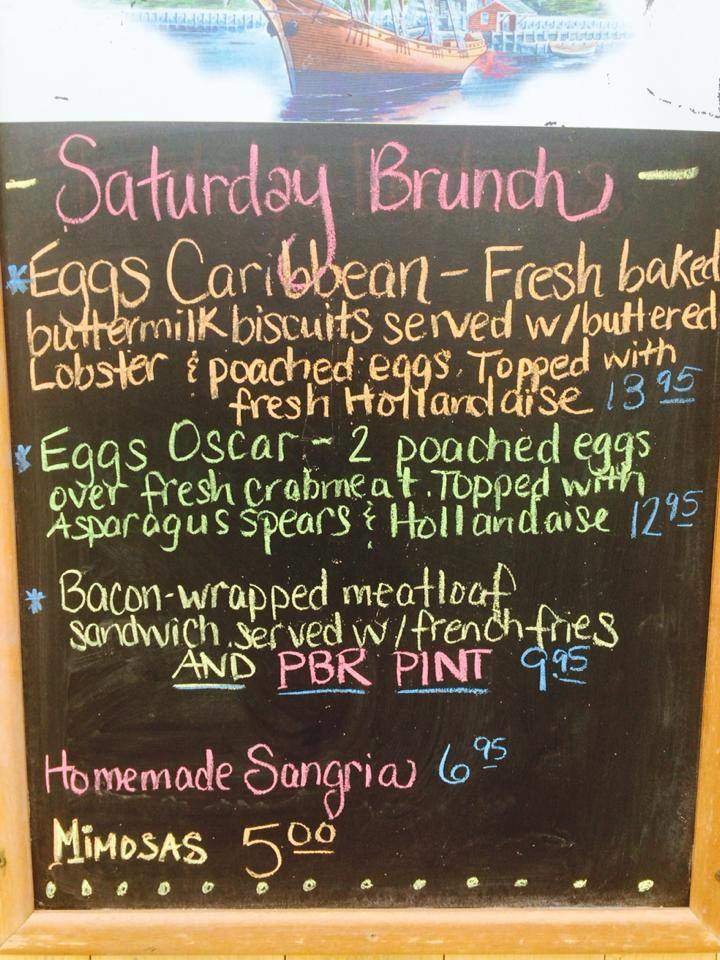 Saturday Brunch
* Eggs Caribbean - Fresh baked
buttermilk biscuits served w/buttered
Lobster & poached eggs. Topped with
fresh Hollandaise 13 95
* Eggs Oscar - 2 poached eggs
over fresh crabmeat. Topped with
Asparagus spears & Hollandaise 12 95
* Bacon-wrapped meatloaf
sandwich served w/ french fries
AND PBR PINT 9.95
Homemade Sangria 6 95
MiMOSAS 5 00